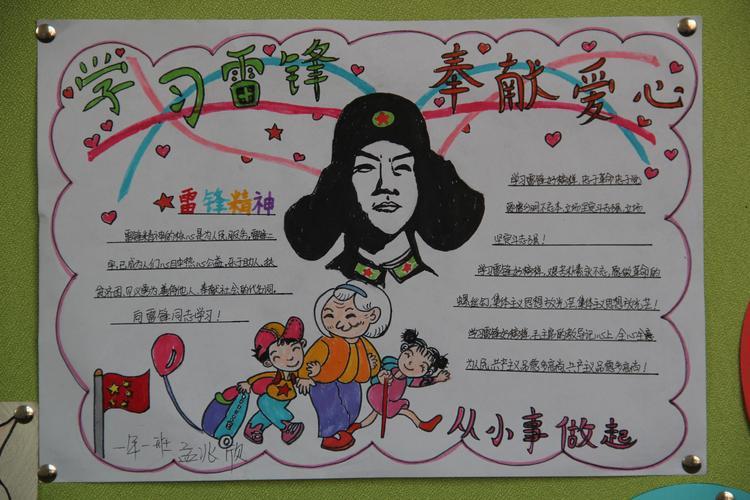 学习雷锋 奉献爱心
雷锋精神
雷锋精神的核心是为人民服务,雷锋二
字,已成为人们心目中热心公益,乐于助人,扶
贫济困,见义勇为,善待他人,奉献社会的代名词。
向雷锋同志学习!
学习雷锋好榜样,忠于革命忠于党
爱憎分明不忘本,立场坚定斗志强,立场
坚定斗志强!
学习雷锋好榜样,艰苦朴素永不忘,愿做革命的
螺丝钉,集体主义思想放光芒,集体主义思想放光芒!
学习雷锋好榜样,毛主席的教导记心上,全心全意
为人民,共产主义品德多高尚,共产主义品德多高尚!
从小事做起
一年一班